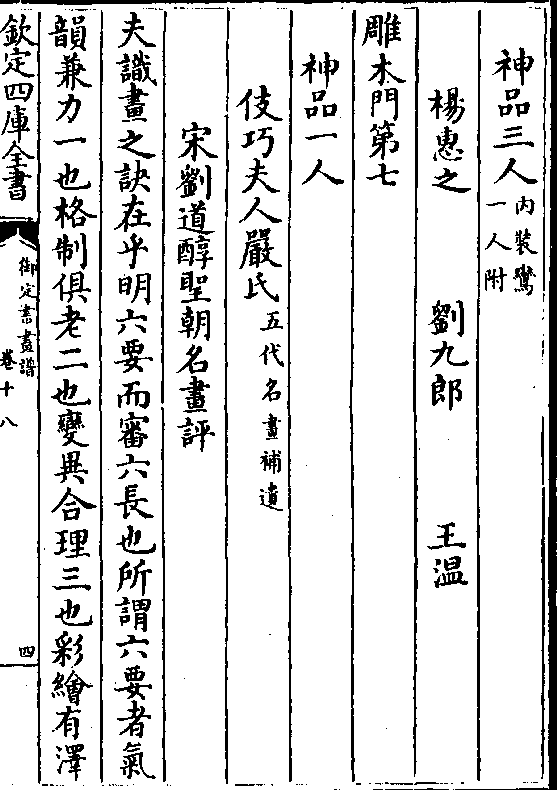 神品三人內裝鸞一人附
楊惠之 劉九郎 王温
雕木門第七
神品一人
伎巧夫人嚴氏五代名畫補遺
宋劉道醇聖朝名畫評
夫識畫之訣在乎明六要而審六長也所謂六要者氣
韻兼力一也格制俱老二也變異合理三也彩繪有澤
欽定四庫全書 御定書畫譜 卷十八 四